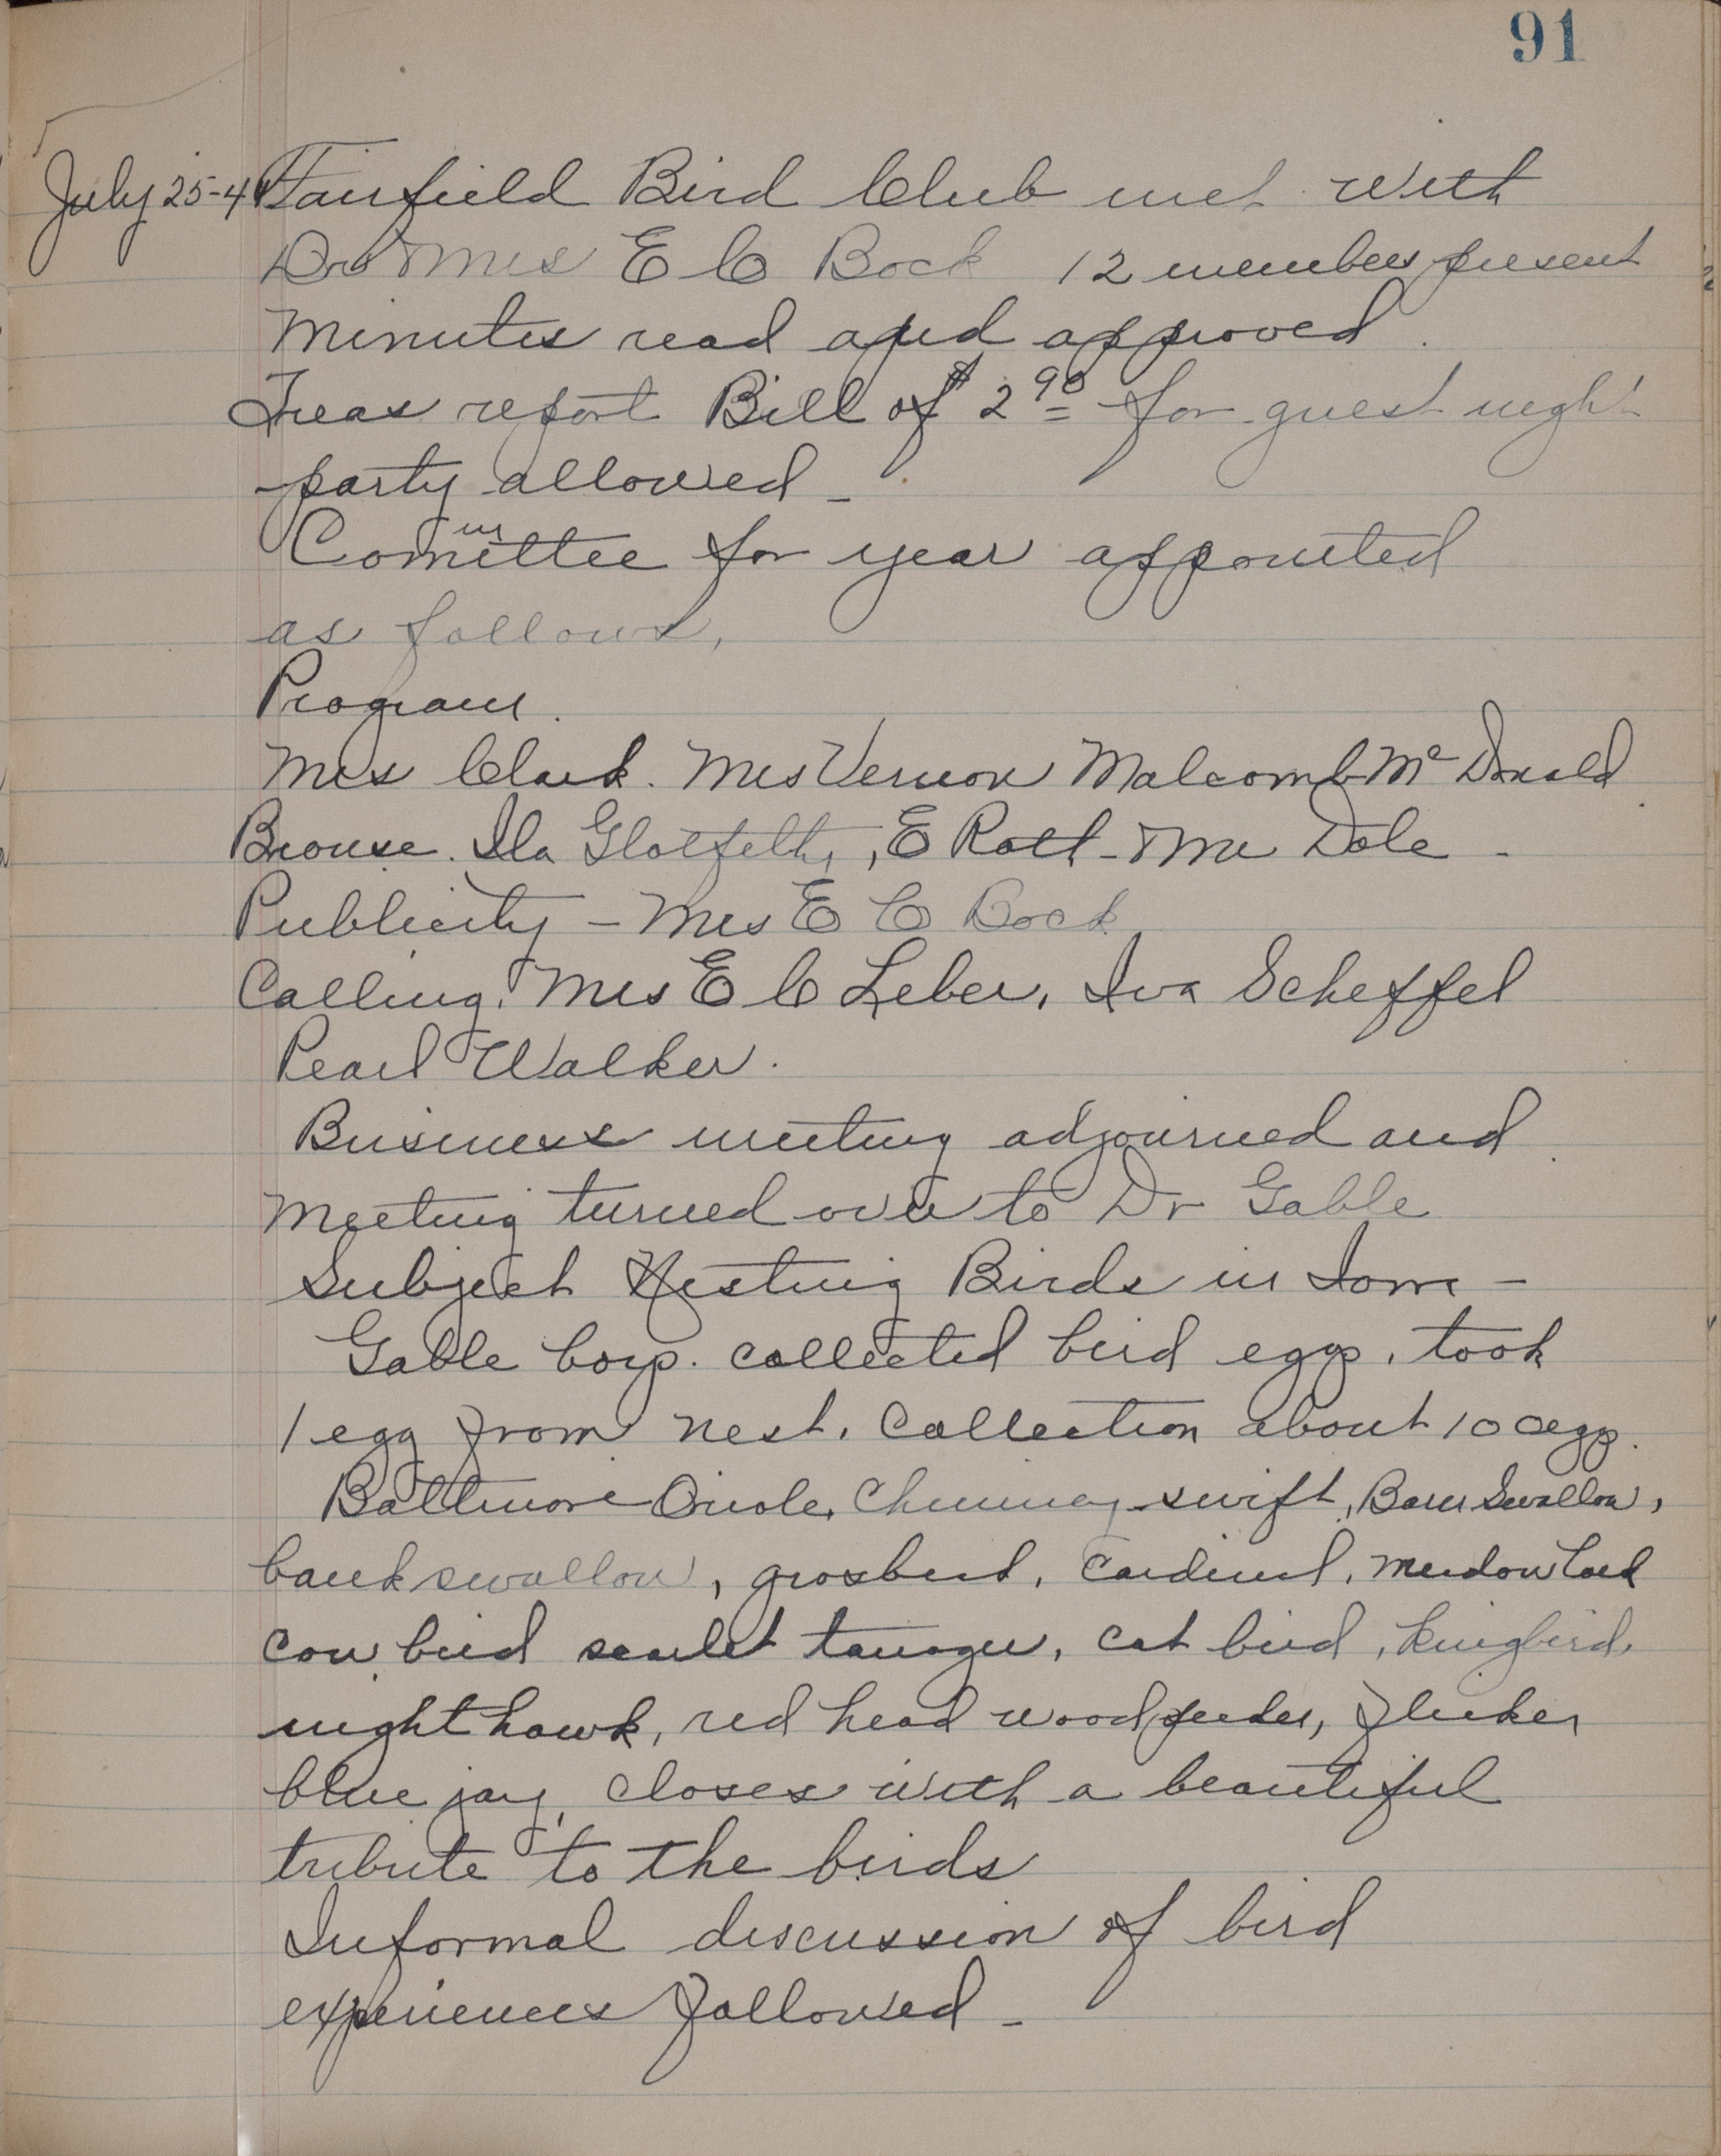 91
July 25-41 Fairfield Bird Club met with
Dr & Mrs E C Bock 12 members present
Minutes read and approved.
Treas report Bill of $2 90 for guest night
party allowed -
Committee for year appointed
as follows,
Program.
Mrs Clark. Mrs Vernon Malcomb McDonald
Brouse. Ila Glotfelty, E Roth - & Mr Dole -
Publicity - Mrs E C Bock
Calling. Mrs E C Leber, Iva Scheffel
Pearl Walker.
Business meeting adjourned and
Meeting turned over to Dr Gable
Subject Nesting Birds in Iowa -
Gable boys. collected bird eggs, took
1 egg from nest. Collection about 100 eggs.
Baltimore Oriole, Chimney swift, Barn Swallow,
bank swallow, grosbeak, Cardinal, Meadow lark
cow bird scarlet tanager, cat bird, kingbird,
night hawk, red head woodpecker, flicker
blue jay, closes with a beautiful
tribute to the birds
Informal discussion of bird
experiences followed -